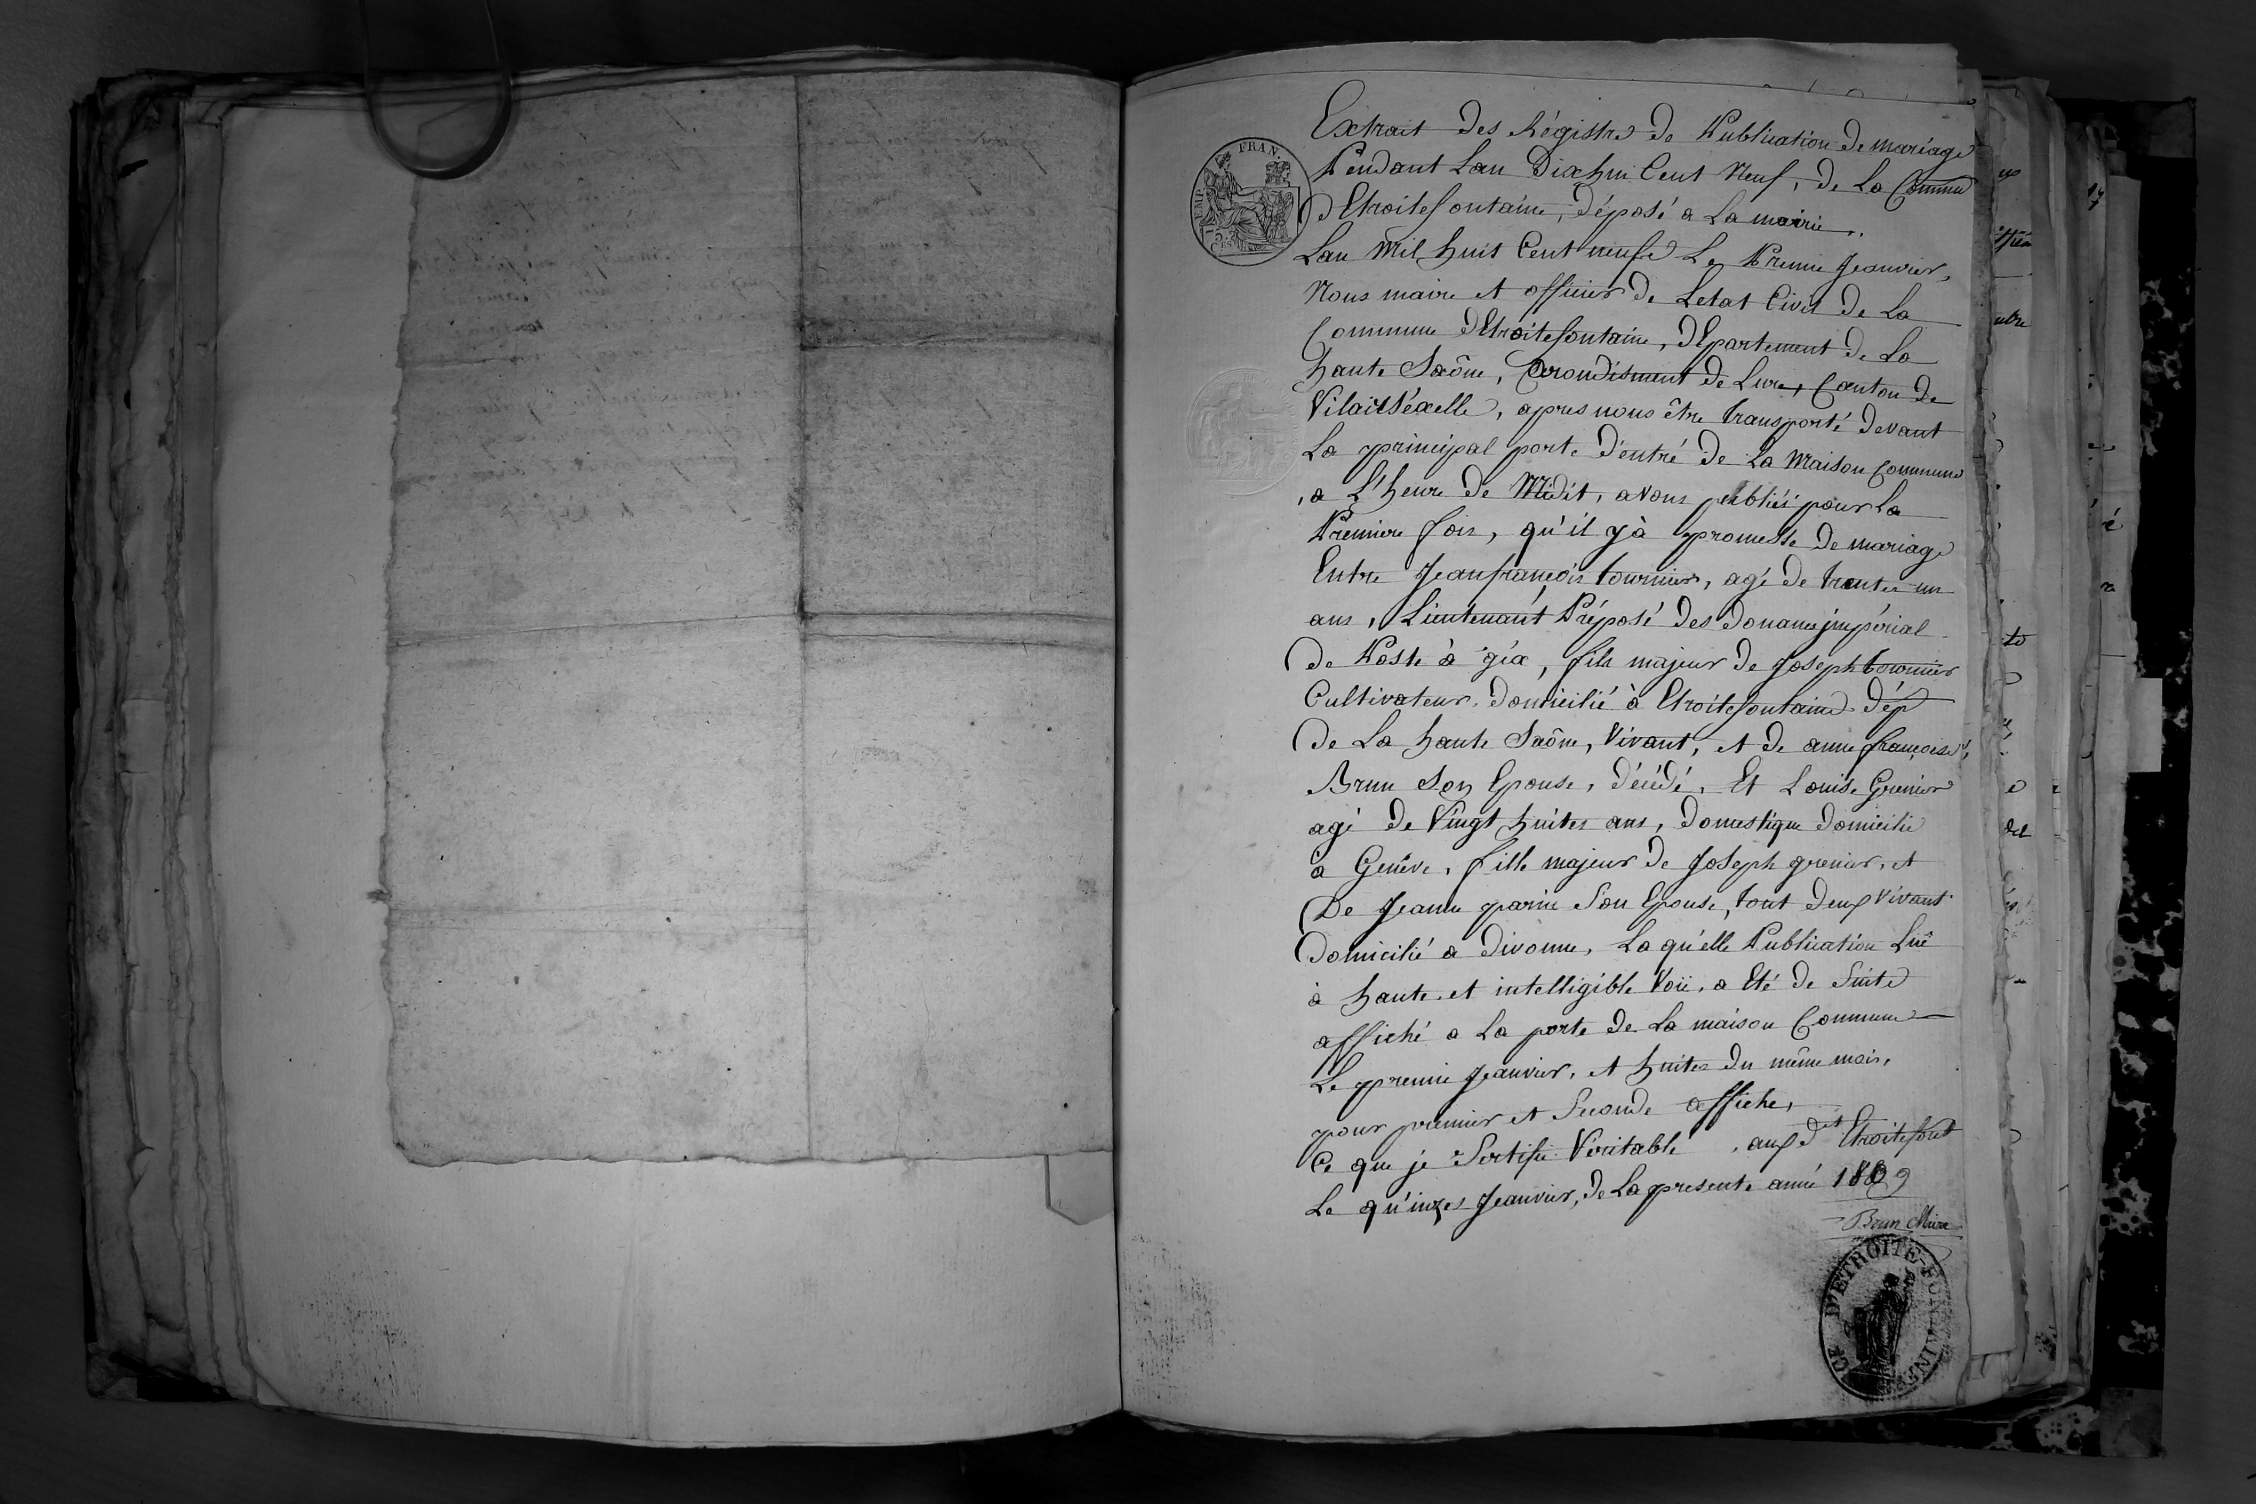 Extrait des Régistre de Publication de mariage
Pendant Lan Dixhui Cent Neuf, de La Commune
d'Etroitefontaine, déposé a La mairie.
FRAN.
EMP.
Lan Mil huit Cent neufs Le Premie Jeanvier,
Nous maire et officier de Letat Civil de La
Commune d'Etroitefontaine, dEpartement de La
haute Saône, Arondisment de Lure, Canton de
Vilairséxelle, apres nous être transporté devant
La principal porte d'entré de La Maison Commune
, a L'heure de Midit, avons publiés pour La
Premiere fois, qu'il yà promesse de mariage
Entre Jeanfrançois tournier, agé de trentes un
ans, Lieutenant Préposé des Donanes jmpérial
de Poste à géx, fils majeur de Joseph tournier
Cultivateur, domicilié à Etroitefontaine dép
de La haute Saône, Vivant, et de anne françoise,
Brun Son Epouse, décédé, Et Louise Grenier
agé de Vingt huites ans, Domestique Domicilié
à Genève, fille majeur de Joseph grenier, et
De Jeanne parnie Son Epouse, tout deux Vivant
Domicilié a divonne, La qu'elle Publication Luë
à haute et intelligible Voië, a Eté de Suite
affiché a La porte de La maison Commune
Le premié Jeanvier, et huites du même mois,
pour premier et Seconde affiche,
Ce que je Sertifie Veritable, aux dit Etroitefont
Le qu'inzes Jeanvier, de La presente anné 1809
Brun Maire
CE D'ETROITE-FONTAINE